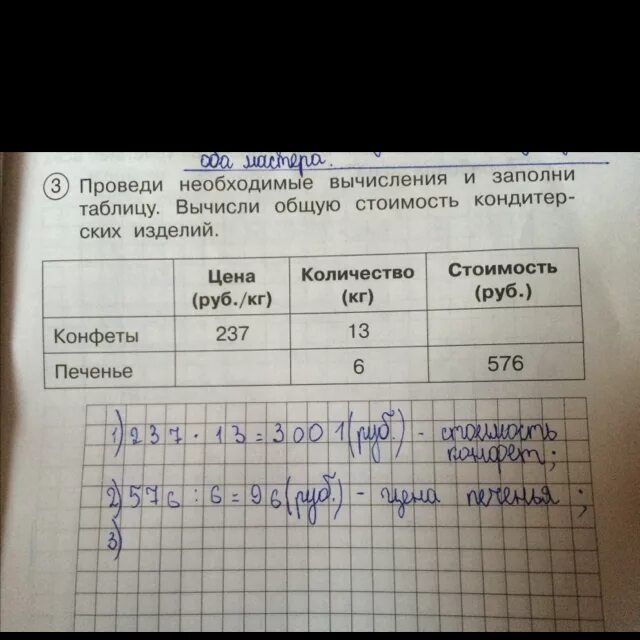 оба мастера.
3 Проведи необходимые вычисления и заполни
таблицу. Вычисли общую стоимость кондитер-
ских изделий.
Цена (руб./кг) Количество (кг) Стоимость (руб.)
Конфеты 237 13
Печенье 6 576
1) 237 · 13 = 3001 (руб.) - стоимость
конфет;
2) 576 : 6 = 96 (руб.) - цена печенья;
3)